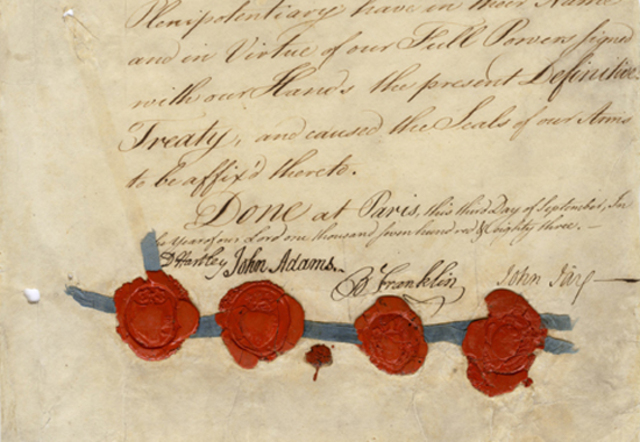 Plenipotentiary have in their Name
and in Virtue of our Full Powers signed
with our Hands the present Definitive
Treaty, and caused the Seals of our Arms
to be affix'd thereto.
Done at Paris, this third Day of September, In
the Year of our Lord one thousand seven hundred & eighty three. —
D Hartley John Adams. B Franklin John Jay —